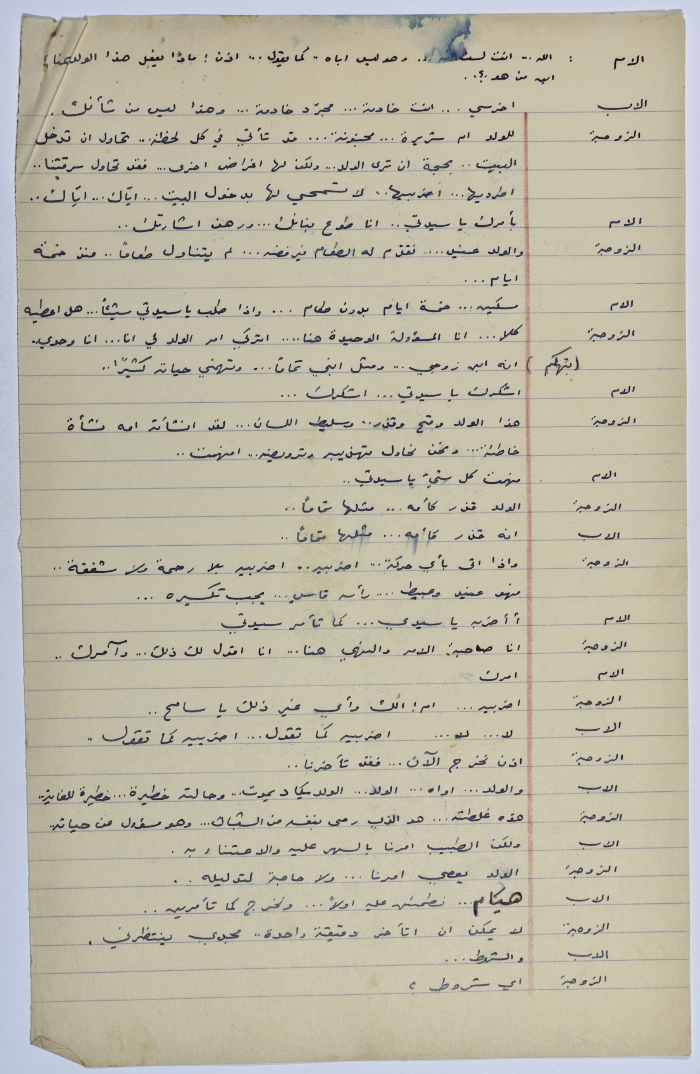 الام : الله .. انت لست امه .. وهو ليس اباه .. كما يقول ... اذن ! ماذا يفعل هذا الولد هنا ؟
ابن من هو ؟..
الاب اخرسي ... انت خادمة ... مجرّد خادمة ... وهذا ليس من شأنك .
الزوجة للولد ام شريرة ... مجنونة ... قد تأتي في كل لحظة .. تحاول ان تدخل
البيت .. بحجة ان ترى الولد .. ولكن لها اغراض اخرى ... فقد تحاول سرقتنا ..
اطرديها ... اضربيها .. لا تسمحي لها بدخول البيت ... ايّاك ... ايّاك ..
الام بأمرك يا سيدتي .. انا طوع بنانك ... ورهن اشارتك ..
الزوجة والولد عنيد .... نقدّم له الطعام فيرفضه ... لم يتناول طعامًا .. منذ خمسة
ايام ...
الام مسكين ... خمسة ايام بدون طعام ... واذا طلب يا سيدتي شيئًا ... هل اعطيه
الزوجة كلا ... انا المسؤولة الوحيدة هنا .... اتركي امر الولد لي انا ... انا وحدي .
(بتهكم) انه ابن زوجي ... ومثل ابني تمامًا ... وتهمني حياته كثيرًا ..
الام اشكرك يا سيدتي ... اشكرك ...
الزوجة هذا الولد وقح وقذر .. وسليط اللسان ... لقد انشأته امه نشأة
خاطئة ... ونحن نحاول تهذيبه وترويضه .. افهمت ..
الام فهمت كل شيئ يا سيدتي ..
الزوجة الولد قذر كأمه ... مثلها تمامًا ..
الاب انه قذر كأمه ... مثلها تمامًا ..
الزوجة واذا اتى بأي حركة .. اضربيه .. اضربيه بلا رحمة ولا شفقة ..
فهو عنيد وعبيط .... رأسه قاس ... يجب تكسيره ...
الام أ أضربه يا سيدي ... كما تأمر سيدتي
الزوجة انا صاحبة الامر والنهي هنا ... انا اقول لك ذلك ... وآمرك ..
الام امرك
الزوجة اضربيه ... ام ! الك رأي غير ذلك يا سامح ..
الاب لا ... لا ... اضربيه كما تقول ... اضربيه كما تقول .
الزوجة اذن نخرج الآن ... فقد تأخرنا ..
الاب والولد ... اواه ... الولد ... الولد يكاد يموت ... وحالته خطيرة ... خطيرة للغاية ..
الزوجة هذه غلطته ... هو الذي رمى بنفسه من الشباك ... وهو مسؤول عن حياته .
الاب ولكن الطبيب امرنا بالسهر عليه والاعتناء به .
الزوجة الولد يعصي امرنا ... ولا حاجة لتدليله ..
الاب هيكام ... نطمئن عليه اولاً ... ونخرج كما تأمرين ..
الزوجة لا يمكن ان اتأخر دقيقة واحدة .. مجدي ينتظرني .
الاب والشروط ...
الزوجة اي شروط ؟